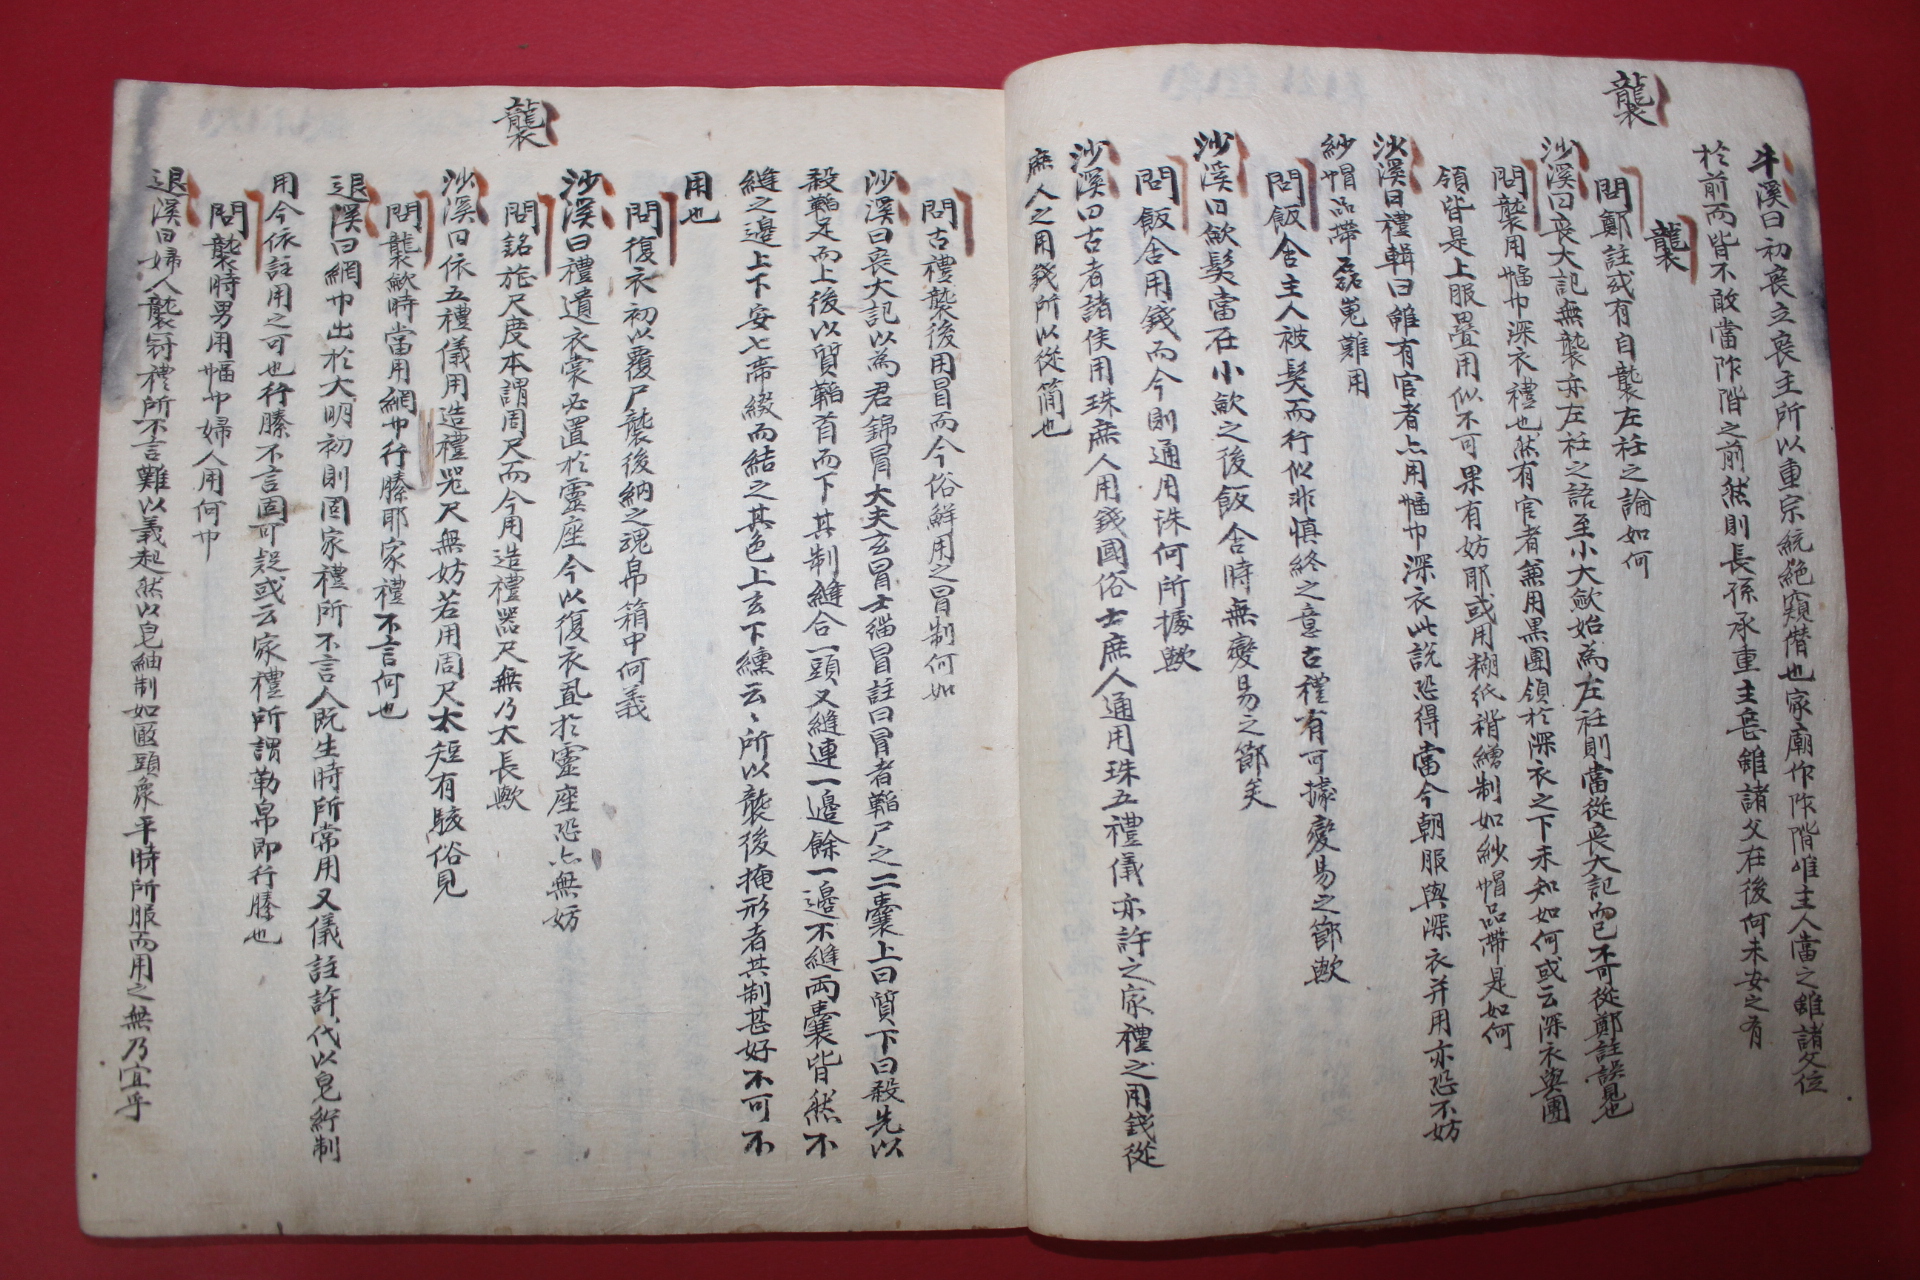 襲
牛溪曰初喪立喪主所以重宗統絶窺僭也家廟作阼階唯主人當之雖諸父位
於前而皆不敢當阼階之前然則長孫承重主喪雖諸父在後何未安之有
襲
問鄭註或有自襲左衽之論如何
沙溪曰喪大記無襲亦左衽之語至小大歛始爲左衽則當從喪大記而已不可從鄭註誤見也
問襲用幅巾深衣禮也然有官者兼用黑團領於深衣之下未知如何或云深衣與團
領皆是上服疊用似不可果有妨耶或用糊紙楷繒制如紗帽品帶是如何
沙溪曰禮輯曰雖有官者亦用幅巾深衣此說恐得當今朝服與深衣并用亦恐不妨
紗帽品帶磊嵬難用
問飯含主人被髮而行似非愼終之意古禮有可據變易之節歟
沙溪曰歛髮當在小歛之後飯含時無變易之節矣
問飯含用錢而今則通用珠何所據歟
沙溪曰古者諸侯用珠庶人用錢國俗士庶人通用珠五禮儀亦許之家禮之用錢從
庶人之用錢所以從簡也
襲
問古禮襲後用冒而今俗鮮用之冒制何如
沙溪曰喪大記以爲君錦冒大夫玄冒士緇冒註曰冒者韜尸之二囊上曰質下曰殺先以
殺韜足而上後以質韜首而下其制縫合一頭又縫連一邊餘一邊不縫兩囊皆然不
縫之邊上下安七帶綴而結之其色上玄下纁云〻所以襲後掩形者其制甚好不可不
用也
問復衣初以覆尸襲後納之魂帛箱中何義
沙溪曰禮遺衣裳必置於靈座今以復衣置於靈座恐亦無妨
問銘旌尺度本謂周尺而今用造禮器尺無乃太長歟
沙溪曰依五禮儀用造禮器尺無妨若用周尺太短有駭俗見
問襲歛時當用網巾行縢耶家禮不言何也
退溪曰網巾出於大明初則固家禮所不言人既生時所常用又儀註許代以皂紬制
用今依註用之可也行縢不言固可疑或云家禮所謂勒帛即行縢也
問襲時男用幅巾婦人用何巾
退溪曰婦人襲冠禮所不言難以義起然以皂紬制如匼頭象平時所服而用之無乃宜乎